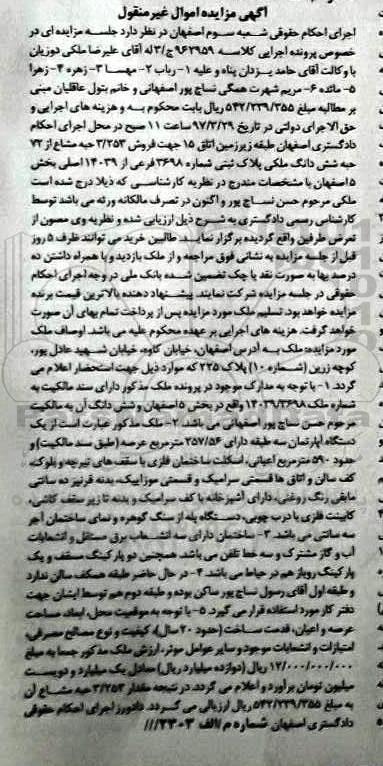 آگهی مزایده اموال غیرمنقول
اجرای احکام حقوقی شعبه سوم اصفهان در نظر دارد جلسه مزایده ای در
خصوص پرونده اجرایی کلاسه ۹۶۲۹۵۹ ج/۳ له آقای علیرضا ملکی دوزیان
با وکالت آقای حامد یزدان پناه و علیه ۱- رباب ۲- مهسا ۳- زهره ۴- زهرا
۵- مائده ۶- مریم شهرت همگی نساج پور اصفهانی و خانم بتول عاقلیان مبنی
بر مطالبه مبلغ ۵۴۲/۲۳۹/۳۵۵ ریال بابت محکوم به و هزینه های اجرایی و
حق الاجرای دولتی در تاریخ ۹۷/۳/۲۹ ساعت ۱۱ صبح در محل اجرای احکام
دادگستری اصفهان طبقه زیرزمین اتاق ۱۵ جهت فروش ۳/۲۵۳ حبه مشاع از ۷۲
حبه شش دانگ ملکی پلاک ثبتی شماره ۳۶۹۸ فرعی از ۱۴۰۳۹ اصلی بخش
۵ اصفهان با مشخصات مندرج در نظریه کارشناسی که ذیلا درج شده است
ملکی مرحوم حسن نساج پور و اکنون در تصرف مالکانه ورثه می باشد توسط
کارشناس رسمی دادگستری به شرح ذیل ارزیابی شده و نظریه وی مصون از
تعرض طرفین واقع گردیده برگزار نماید. طالبین خرید می توانند ظرف ۵ روز
قبل از جلسه مزایده به نشانی فوق مراجعه و از ملک بازدید و با همراه داشتن ده
درصد بها به صورت نقد یا چک تضمین شده بانک ملی در وجه اجرای احکام
حقوقی در جلسه مزایده شرکت نمایند. پیشنهاد دهنده بالاترین قیمت برنده
مزایده خواهد بود. تسلیم ملک مورد مزایده پس از پرداخت تمام بهای آن صورت
خواهد گرفت. هزینه های اجرایی بر عهده محکوم علیه می باشد. اوصاف ملک
مورد مزایده: ملک به آدرس اصفهان، خیابان کاوه، خیابان شهید عادل پور،
کوچه زرین (شماره ۱۰) پلاک ۲۲۵ که موارد ذیل جهت استحضار اعلام می
گردد. ۱- با توجه به مدارک موجود در پرونده ملک مذکور دارای سند مالکیت به
شماره ملک ۱۴۰۳۹/۳۶۹۸ واقع در بخش ۵ اصفهان و شش دانگ آن به مالکیت
مرحوم حسن نساج پور اصفهانی می باشد. ۲- ملک مذکور عبارت است از یک
دستگاه آپارتمان سه طبقه دارای ۲۵۷/۵۶ مترمربع عرصه (طبق سند مالکیت) و
حدود ۵۹۰ مترمربع اعیانی، اسکلت ساختمان فلزی با سقف های تیرچه و بلوک،
کف سالن و اتاق ها قسمتی سرامیک و قسمتی موزاییک، بدنه قرنیز ده سانتی
مابقی رنگ روغنی، دارای آشپزخانه با کف سرامیک و بدنه تا زیر سقف کاشی،
کابینت فلزی با درب چوبی، دستگاه پله از سنگ گوهره و نمای ساختمان آجر
سه سانتی می باشد. ۳- ساختمان دارای سه انشعاب برق مستقل و انشعابات
آب و گاز مشترک و سه خط تلفن می باشد. همچنین دو پارکینگ مسقف و یک
پارکینگ روباز هم در حیاط می باشد. ۴- در حال حاضر طبقه همکف سالن ندارد
و طبقه اول آقای رسول نساج پور ساکن بوده و طبقه دوم هم توسط ایشان جهت
دفتر کار مورد استفاده قرار می گیرد. ۵- با توجه به موقعیت محل، ابعاد، مساحت
عرصه و اعیان، قدمت ساخت (حدود ۲۰ سال)، کیفیت و نوع مصالح مصرفی،
امتیازات و انشعابات موجود و سایر عوامل موثر، ارزش ملک مذکور جمعا به مبلغ
۱۲/۰۰۰/۰۰۰/۰۰۰ ریال (دوازده میلیارد ریال) معادل یک میلیارد و دویست
میلیون تومان برآورد و اعلام می گردد. در نتیجه مقدار ۳/۲۵۳ حبه مشاع آن
به مبلغ ۵۴۲/۲۳۹/۳۵۵ ریال ارزیابی می گردد. دادورز اجرای احکام حقوقی
دادگستری اصفهان شماره م الف ۳۳۰۳///